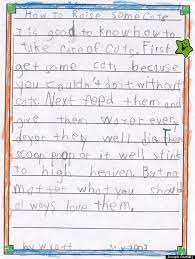 How to Raise some cats
It is good to know how to
take care of cats. First
get some cats because
you couldn't do it without
cats. Next feed them and
give them water every
 they well die. Then
scoop poop or it well stink
to high heaven. But no
matter what you should
always love them.
by wyatt 2003